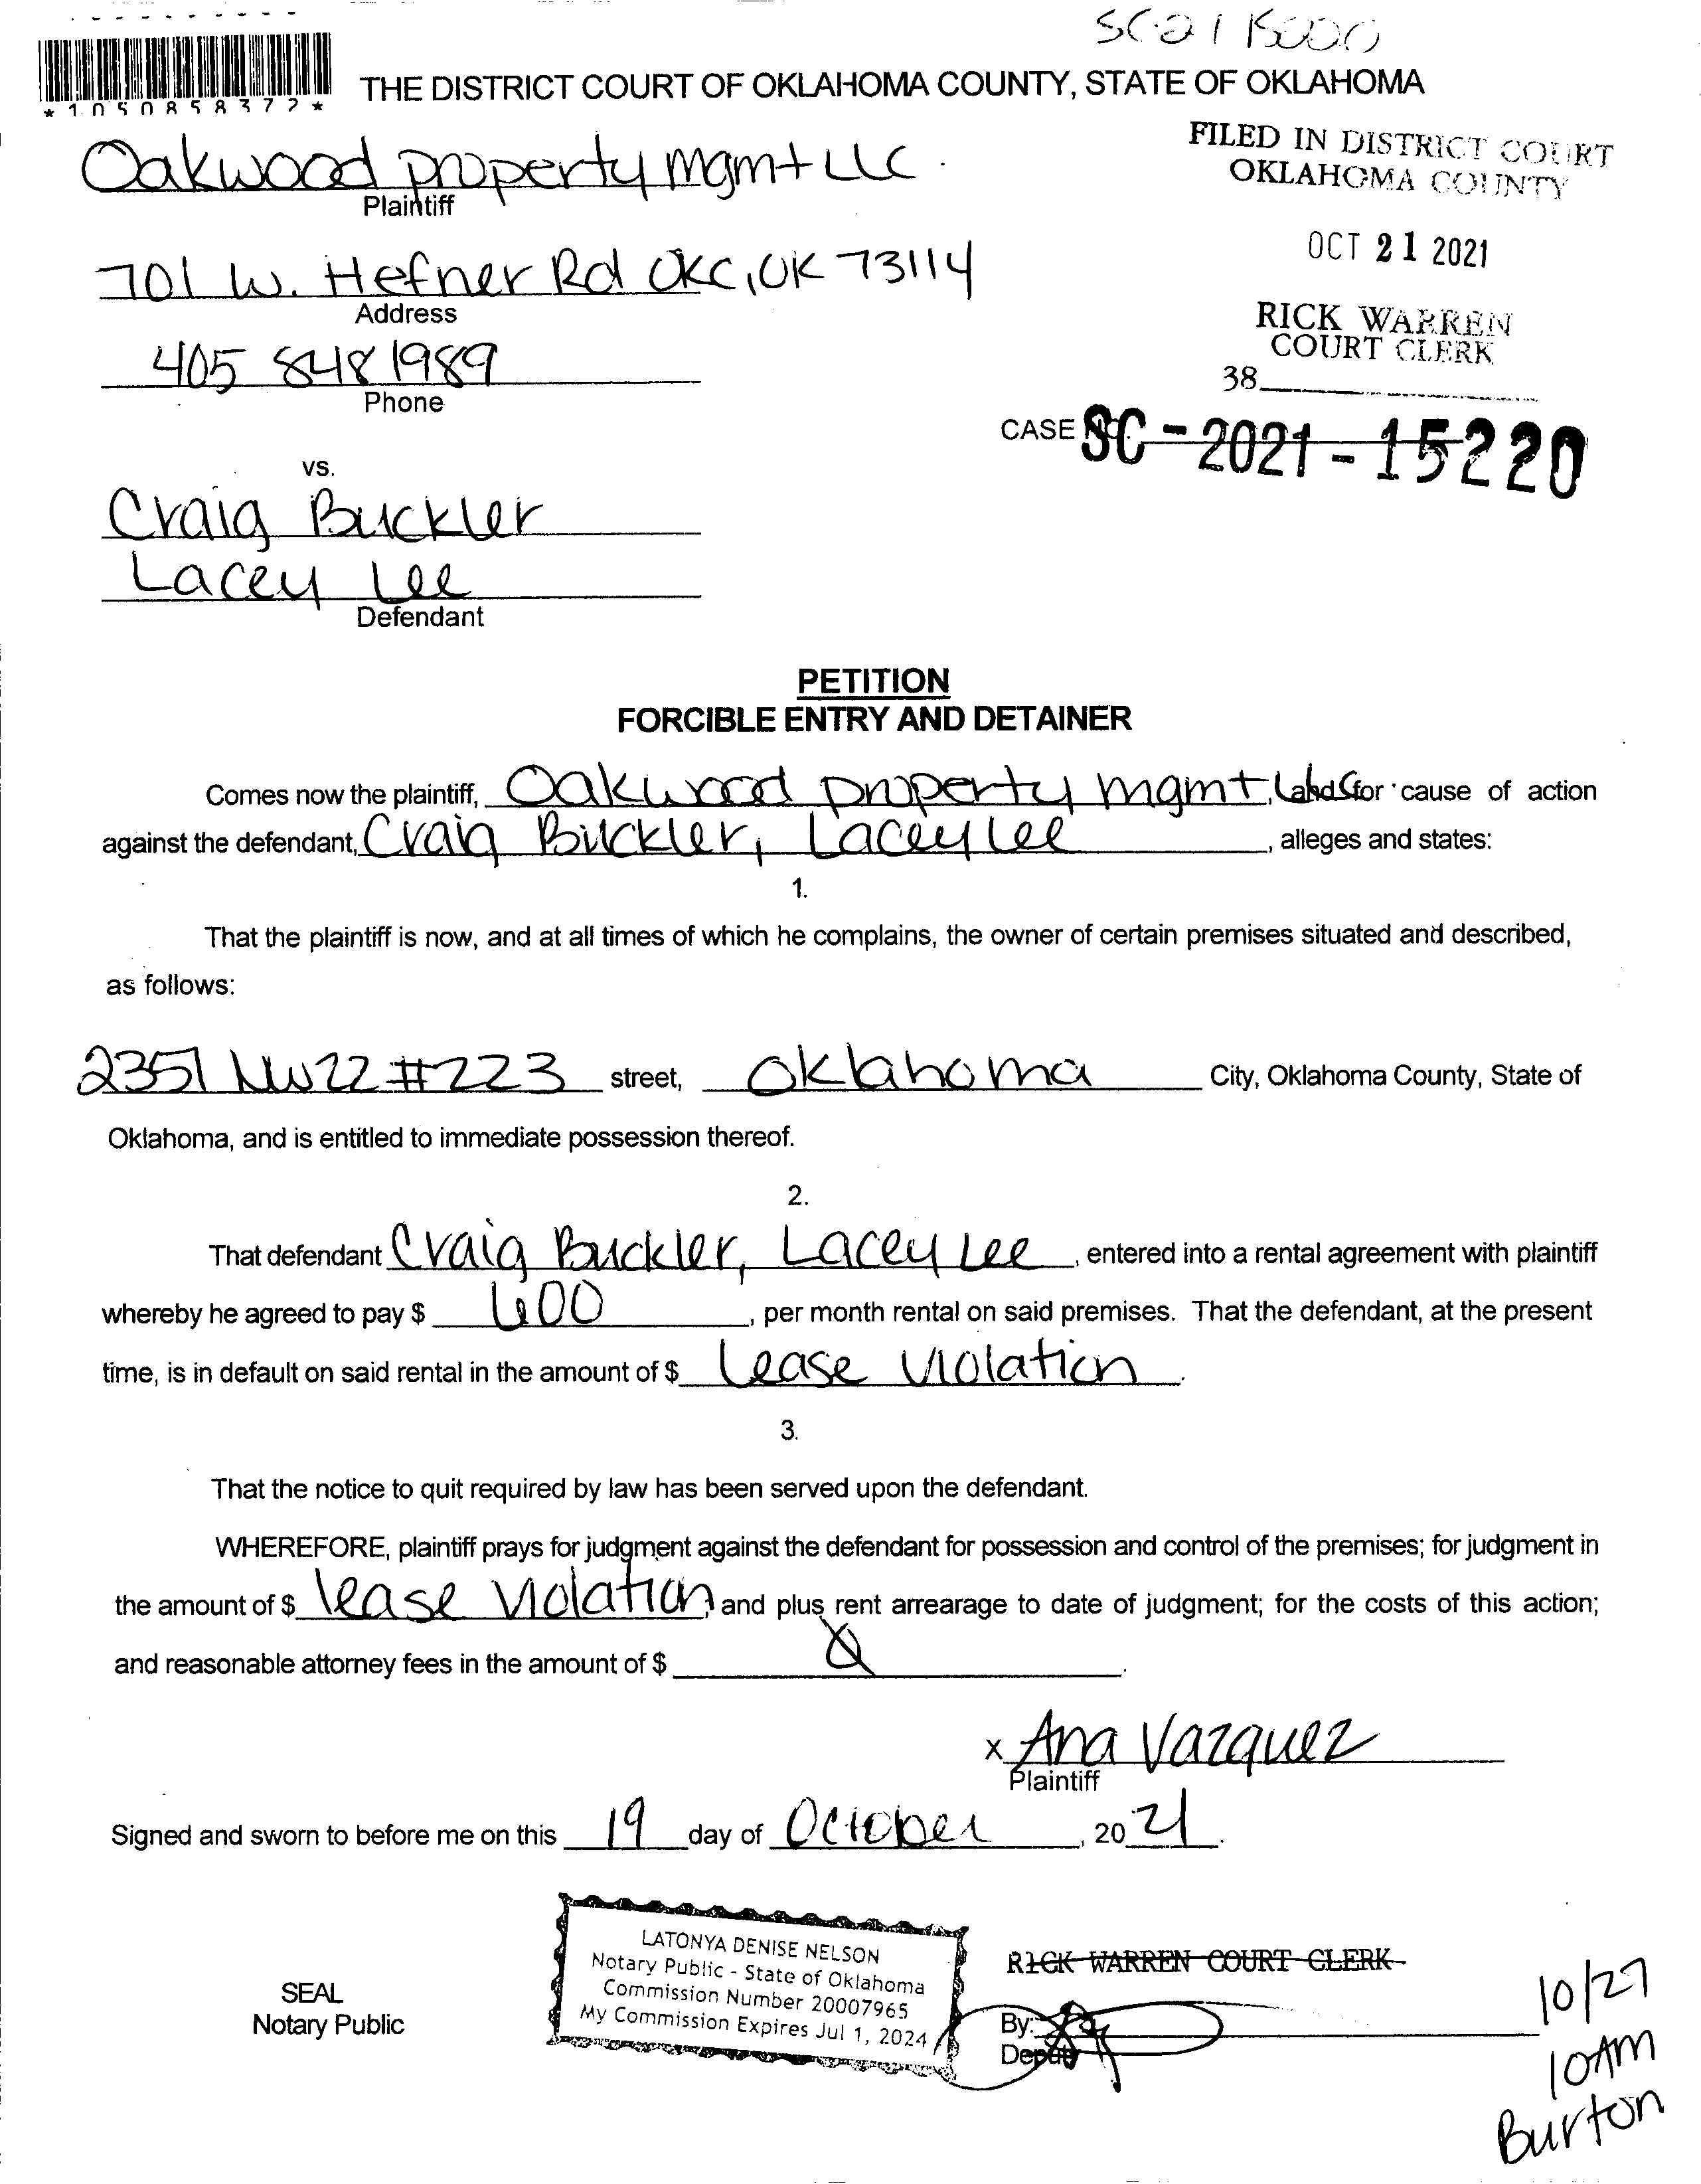 SC21 15000
*1050858372*
THE DISTRICT COURT OF OKLAHOMA COUNTY, STATE OF OKLAHOMA
FILED IN DISTRICT COURT
OKLAHOMA COUNTY
Oakwood property mgmt LLC
Plaintiff
OCT 21 2021
701 W. Hefner Rd OKC, OK 73114
Address
RICK WARREN
COURT CLERK
405 848 1989
Phone
38
CASE NO. SC - 2021 - 15220
vs.
Craig Buckler
Lacey Lee
Defendant
PETITION
FORCIBLE ENTRY AND DETAINER
Comes now the plaintiff, Oakwood property mgmt, LLC and for cause of action
against the defendant, Craig Buckler, Lacey Lee, alleges and states:
1.
That the plaintiff is now, and at all times of which he complains, the owner of certain premises situated and described,
as follows:
2351 NW 22 #223 street, Oklahoma City, Oklahoma County, State of
Oklahoma, and is entitled to immediate possession thereof.
2.
That defendant Craig Buckler, Lacey Lee, entered into a rental agreement with plaintiff
whereby he agreed to pay $ 600, per month rental on said premises. That the defendant, at the present
time, is in default on said rental in the amount of $ Lease violation.
3.
That the notice to quit required by law has been served upon the defendant.
WHEREFORE, plaintiff prays for judgment against the defendant for possession and control of the premises; for judgment in
the amount of $ lease violation, and plus rent arrearage to date of judgment; for the costs of this action;
and reasonable attorney fees in the amount of $
x Ana Vazquez
Plaintiff
Signed and sworn to before me on this 19 day of October, 20 21.
LATONYA DENISE NELSON
Notary Public - State of Oklahoma
Commission Number 20007965
My Commission Expires Jul 1, 2024
SEAL
Notary Public
RICK WARREN COURT CLERK
By:
Deputy
10/27
10AM
Burton